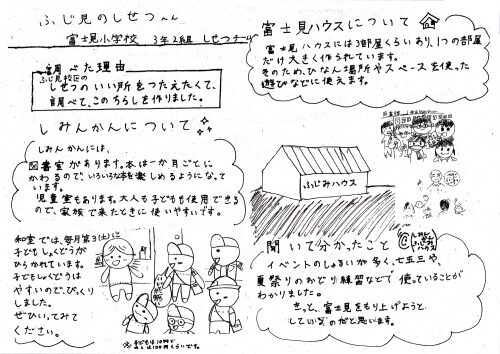 ふじ見のしせつ
富士見小学校 3年2組 しせつチーム
調べた理由
ふじ見校区の
しせつのいい所をつたえたくて、
調べて、このちらしを作りました。
しみんかんについて
しみんかんには、
図書室があります。本は一か月ごとに
かわるので、いろいろな本を楽しめるようになって
います。
児童室もあります。大人も子どもも使用できる
ので、家族で来たときに使いやすいです。
和室では、毎月第3(土)に
子どもしょくどうが
ひらかれています。
子どもしょくどうは
やすいので、びっくり
しました。
ぜひ、いってみて
ください。
※子どもは10円で
大人は100円くらいです。
富士見ハウスについて
富士見ハウスには3部屋くらいあり、1つの部屋
だけ大きく作られています。
そのため、ひなん場所やスペースを使った
遊びなどに使えます。
ふじみハウス
聞いて分かったこと
イベントのしゅるいが多く、七五三や、
夏祭りのおどり練習などで使っていることが
わかりました。
きっと、富士見をもり上げようと
しているのだと思います。